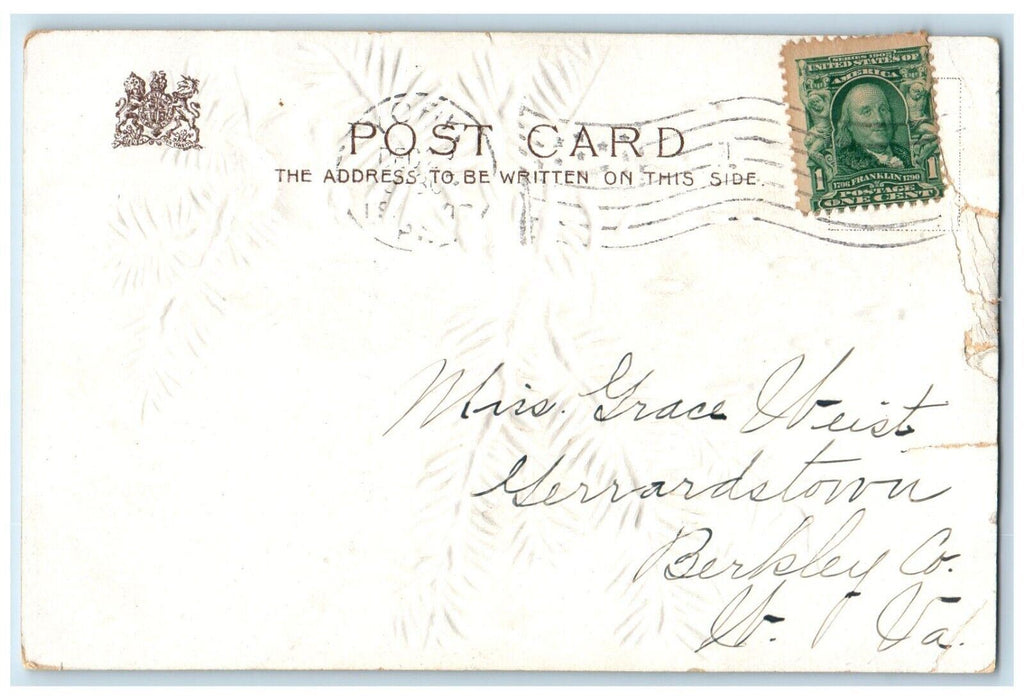 POST CARD
THE ADDRESS TO BE WRITTEN ON THIS SIDE.
SERIES 1902
UNITED STATES OF
AMERICA
1 1706 FRANKLIN 1790 1
POSTAGE
ONE CENT
Miss. Grace Weist
Gerrardstown
Berkley Co.
W. Va.